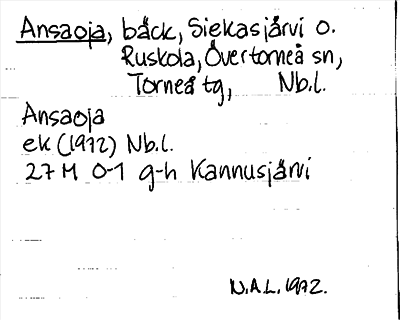 Ansaoja, bäck, Siekasjärvi o.
Ruskola, Övertorneå sn,
Torneå tg, Nb.l.
Ansaoja
ek (1972) Nb.l.
27 M 0-1 g-h Kannusjärvi
N.A.L. 1972.